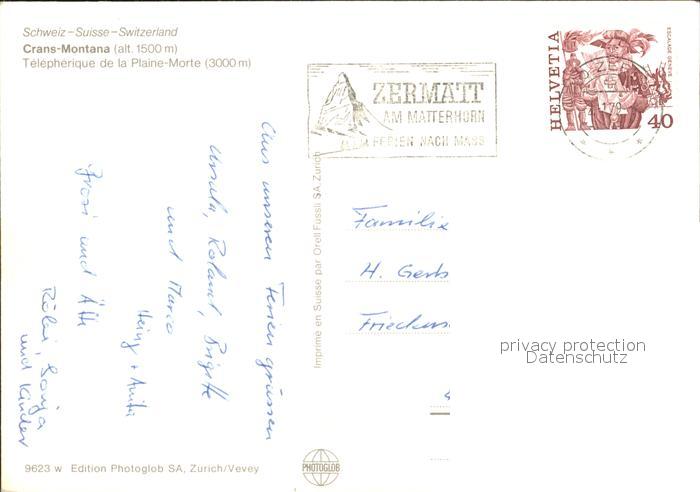 Schweiz–Suisse–Switzerland
Crans-Montana (alt. 1500 m)
Téléphérique de la Plaine-Morte (3000 m)
ZERMATT
AM MATTERHORN
FERIEN NACH MASS
HELVETIA
ESCALADE GENÈVE
40
Aus unseren Ferien grüssen
Ursula, Roland, Brigitte
und Marco
Heinz + Anita
und
Sonja
und Kinder
Imprimé en Suisse par Orell Fussli SA, Zurich
Familie
H. Gerb
privacy protection
Datenschutz
9623 w Edition Photoglob SA, Zurich/Vevey
PHOTOGLOB